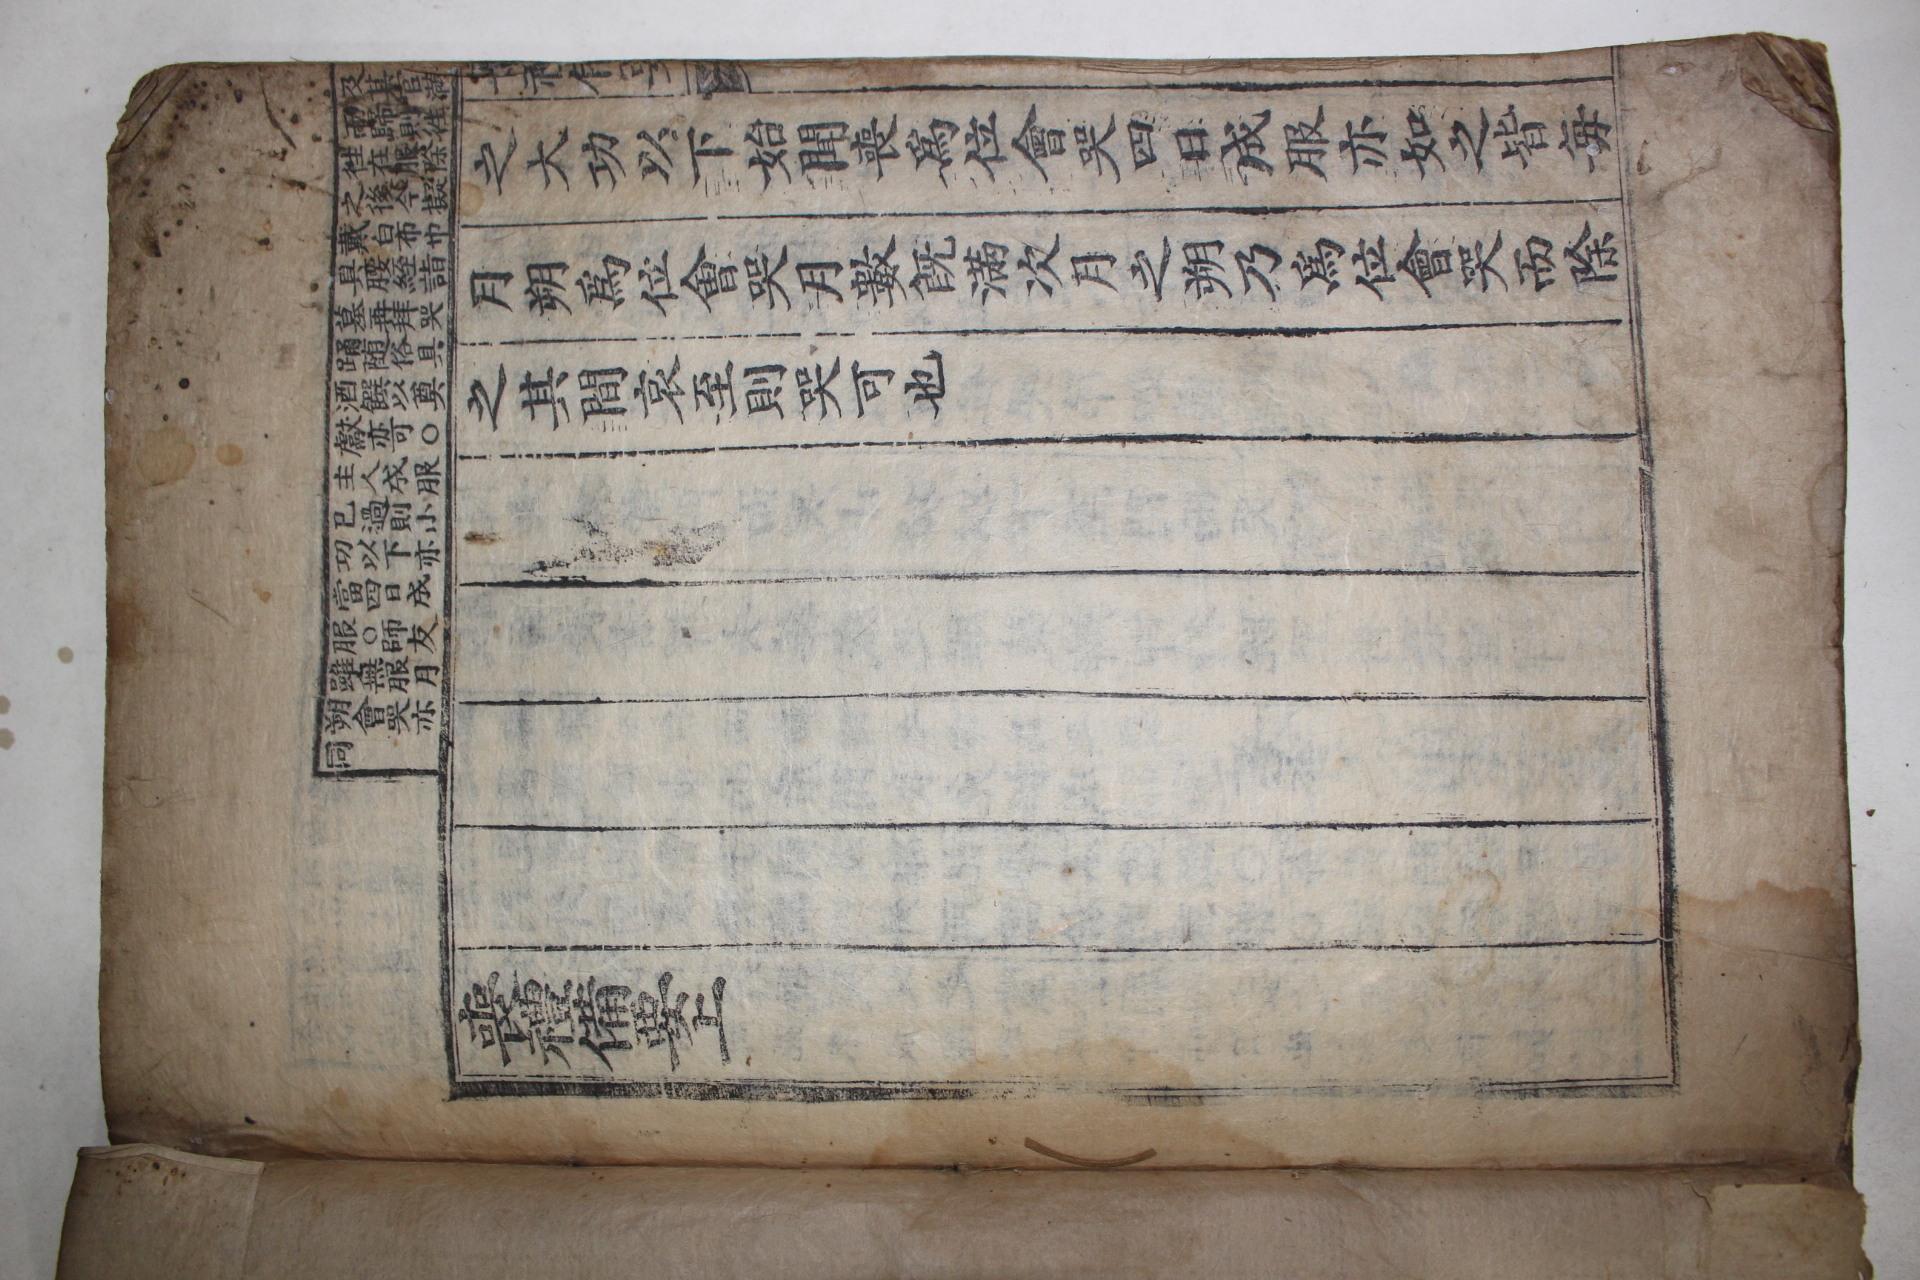 而歸則往
往在服除
之後今擬
戴白布巾
具腰絰詣
墓再拜哭
踊随俗具
酒饌以奠
獻亦可○
主人成服
已過則小
功以下亦
當四日成
服○師友
雖無服月
朔會哭亦
同
之大功以下始聞喪爲位會哭四日成服亦如之皆每
月朔爲位會哭月數旣滿次月之朔乃爲位會哭而除
之其間哀至則哭可也
喪禮備要上